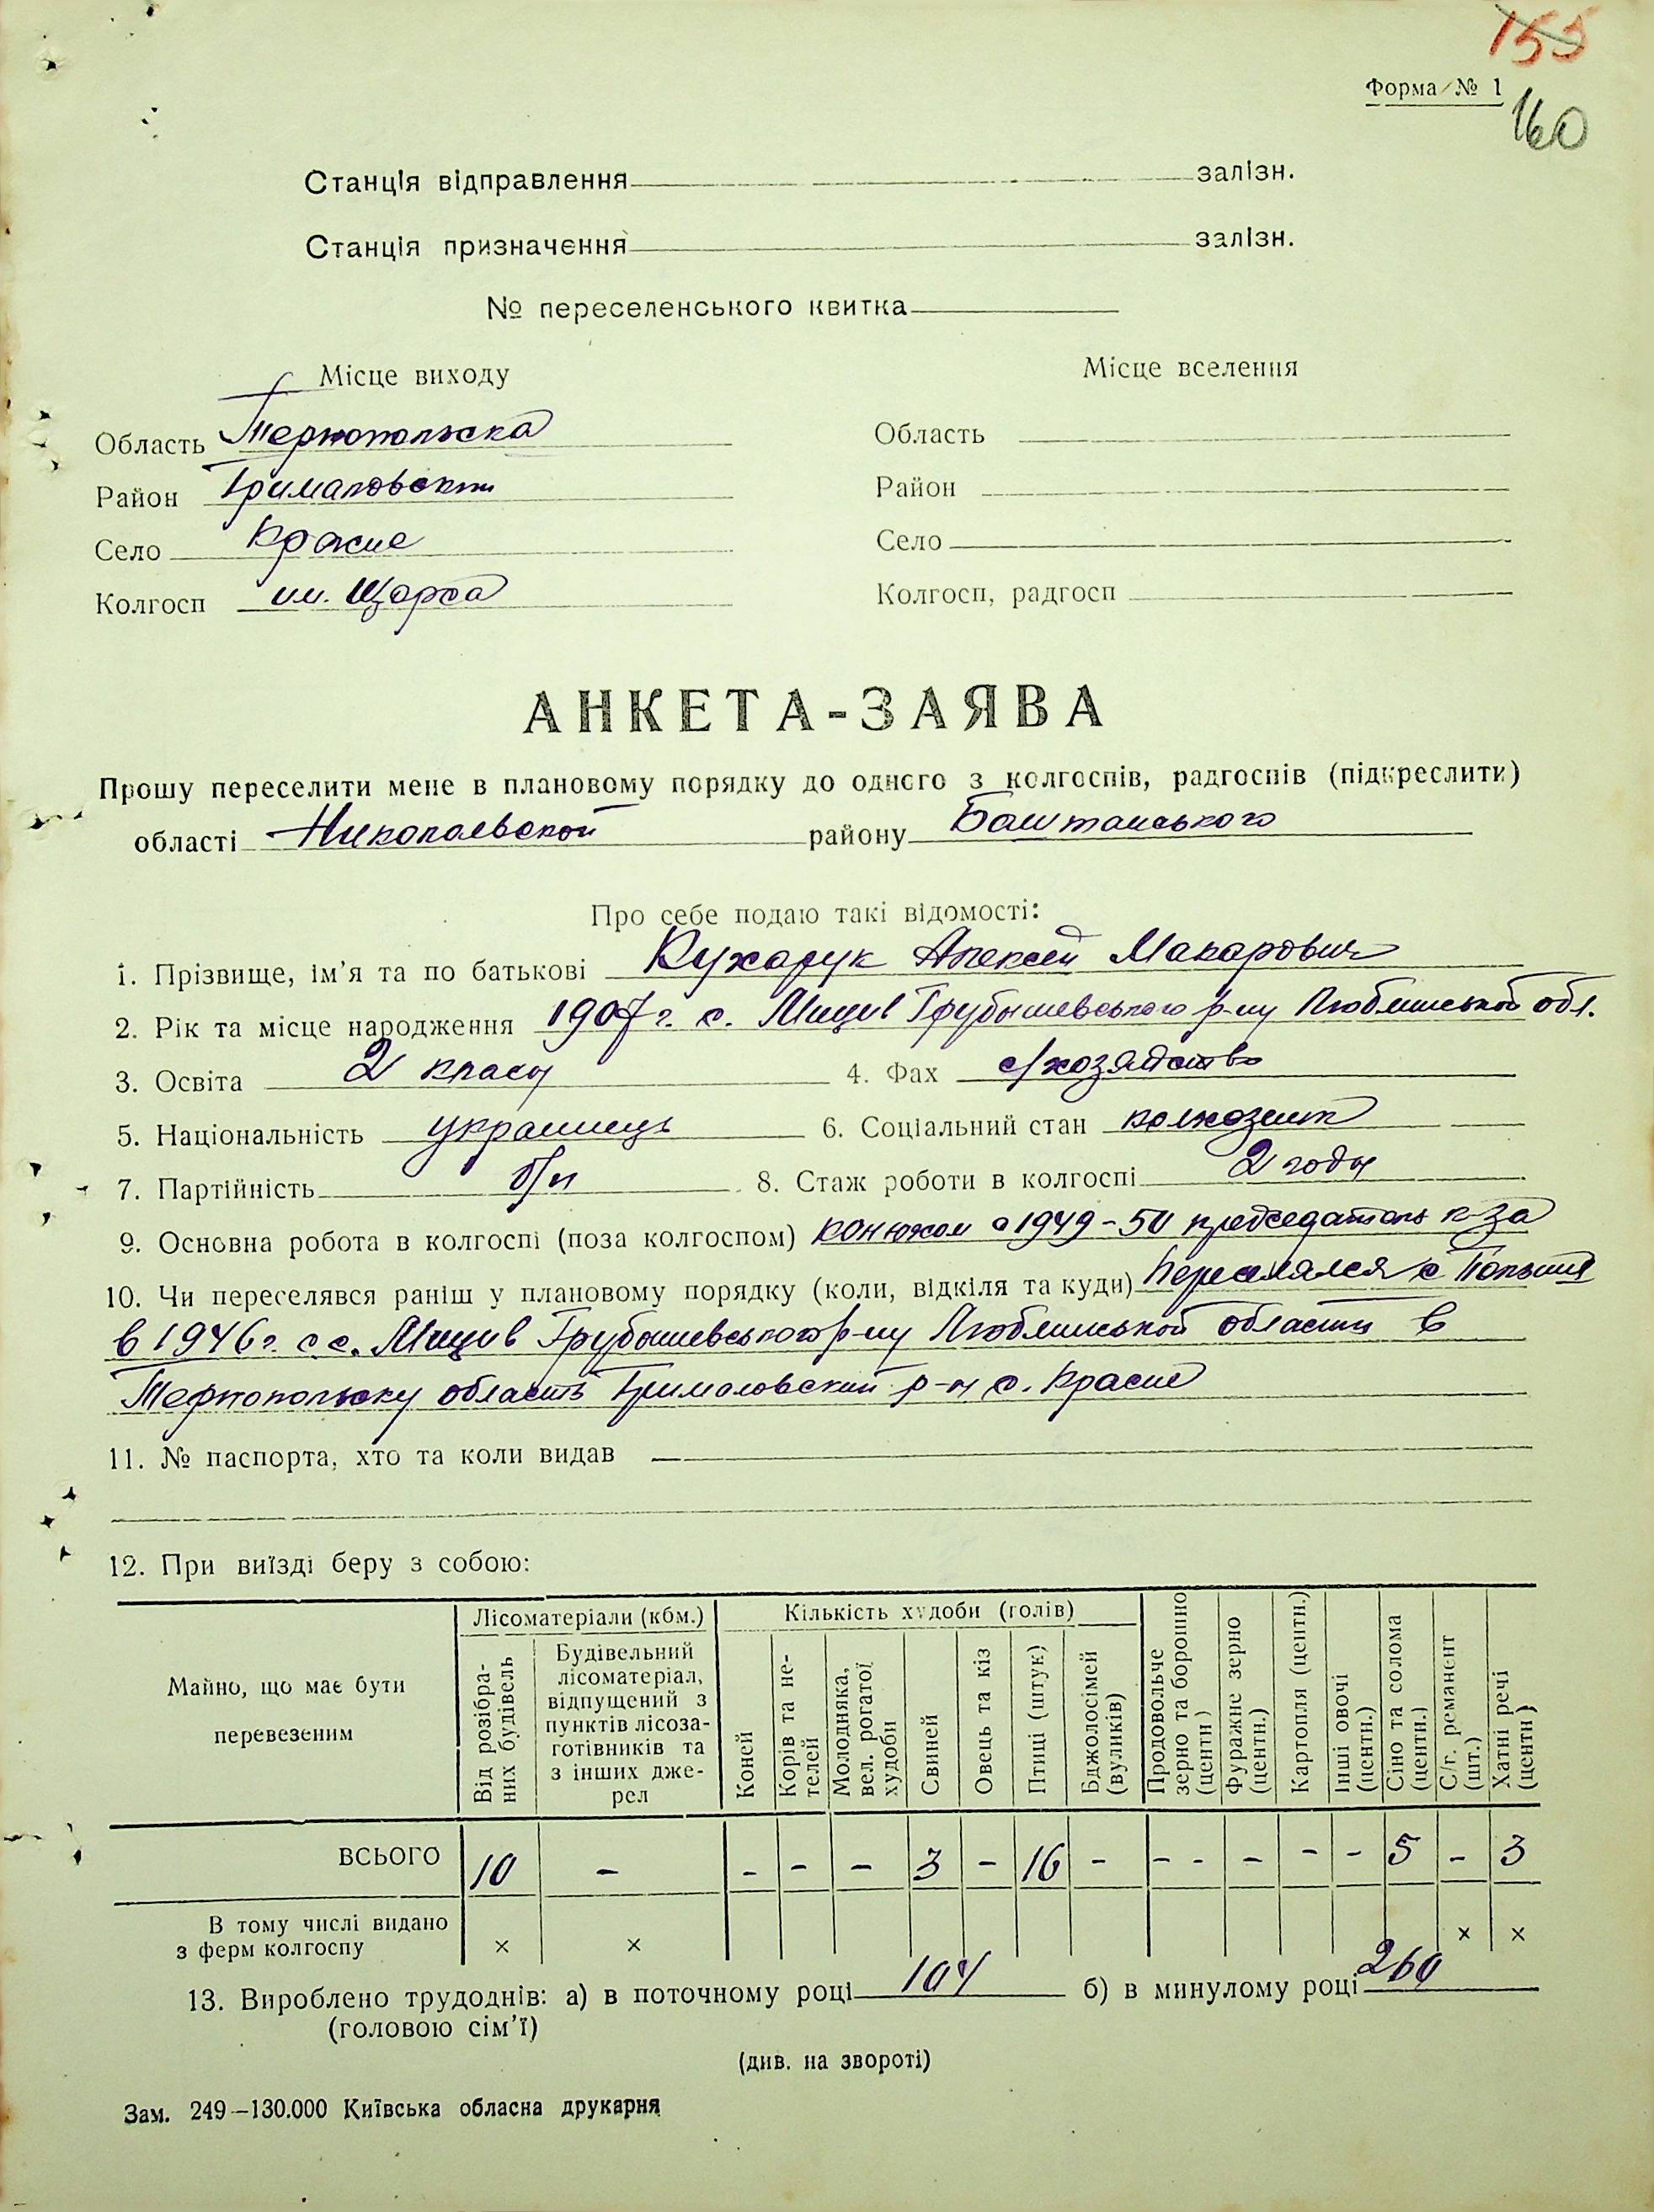 155
Форма № 1
160
Станція відправлення залізн.
Станція призначення залізн.
№ переселенського квитка
Місце виходу Місце вселення
Область Тернопольска Область
Район Грималовский Район
Село Красне Село
Колгосп им. Щорса Колгосп, радгосп
АНКЕТА-ЗАЯВА
Прошу переселити мене в плановому порядку до одного з колгоспів, радгоспів (підкреслити)
області Николаевской району Баштанського
Про себе подаю такі відомості:
1. Прізвище, ім’я та по батькові Кухарук Алексей Макарович
2. Рік та місце народження 1907 г. с. Мицив Грубошевського р-ну Люблинськой обл.
3. Освіта 2 класы 4. Фах с/хозяйство
5. Національність украинець 6. Соціальний стан колхозник
7. Партійність б/п 8. Стаж роботи в колгоспі 2 годы
9. Основна робота в колгоспі (поза колгоспом) конюхом с 1949-50 председатель к-за
10. Чи переселявся раніш у плановому порядку (коли, відкіля та куди) переселялся с Польши
в 1946 г. с с. Мицив Грубошевського р-ну Люблинськой области в
Тернопольску область Грималовский р-н с. Красне
11. № паспорта, хто та коли видав
12. При виїзді беру з собою:
Майно, що має бути перевезеним
Лісоматеріали (кбм.)
Від розібраних будівель
Будівельний лісоматеріал, відпущений з пунктів лісозаготівників та з інших джерел
Кількість худоби (голів)
Коней
Корів та нетелей
Молодняка, вел. рогатої худоби
Свиней
Овець та кіз
Птиці (штук)
Бджолосімей (вуликів)
Продовольче зерно та борошно (центн)
Фуражне зерно (центн.)
Картопля (центн.)
Інші овочі (центн.)
Сіно та солома (центн.)
С/г. реманент (шт.)
Хатні речі (центн)
ВСЬОГО 10 - - - - 3 - 16 - - - - - - 5 - 3
В тому числі видано
з ферм колгоспу × × × ×
13. Вироблено трудоднів: а) в поточному році 104 б) в минулому році 260
(головою сім’ї)
(див. на звороті)
Зам. 249—130.000 Київська обласна друкарня